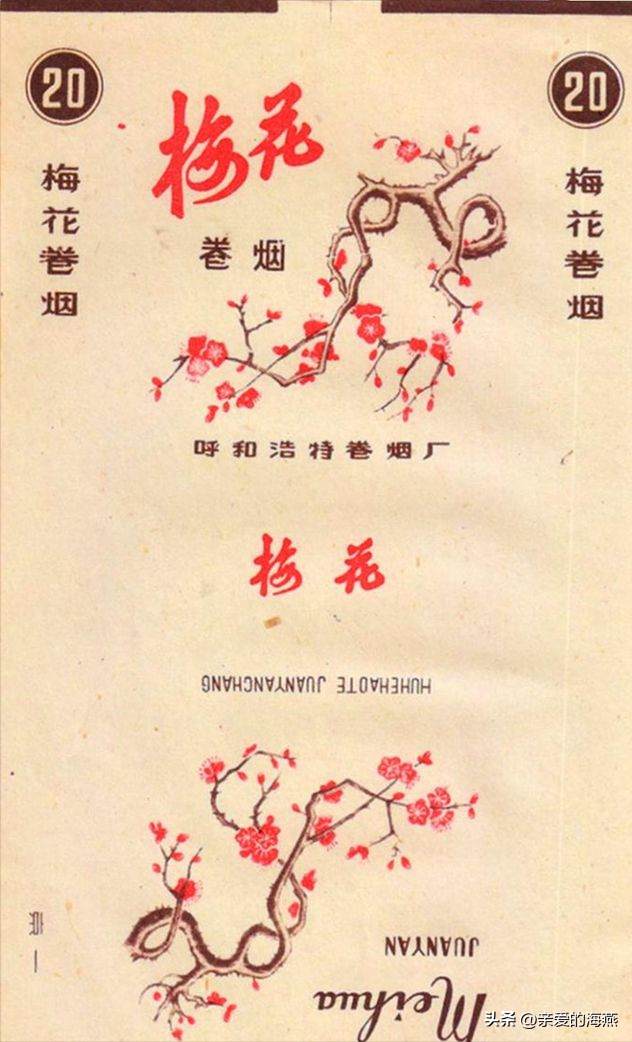 20
20
梅花卷烟
梅花卷烟
梅花
卷烟
呼和浩特卷烟厂
梅花
HUHEHAOTE JUANYANCHANG
京一
JUANYAN
Meihua
头条 @亲爱的海燕